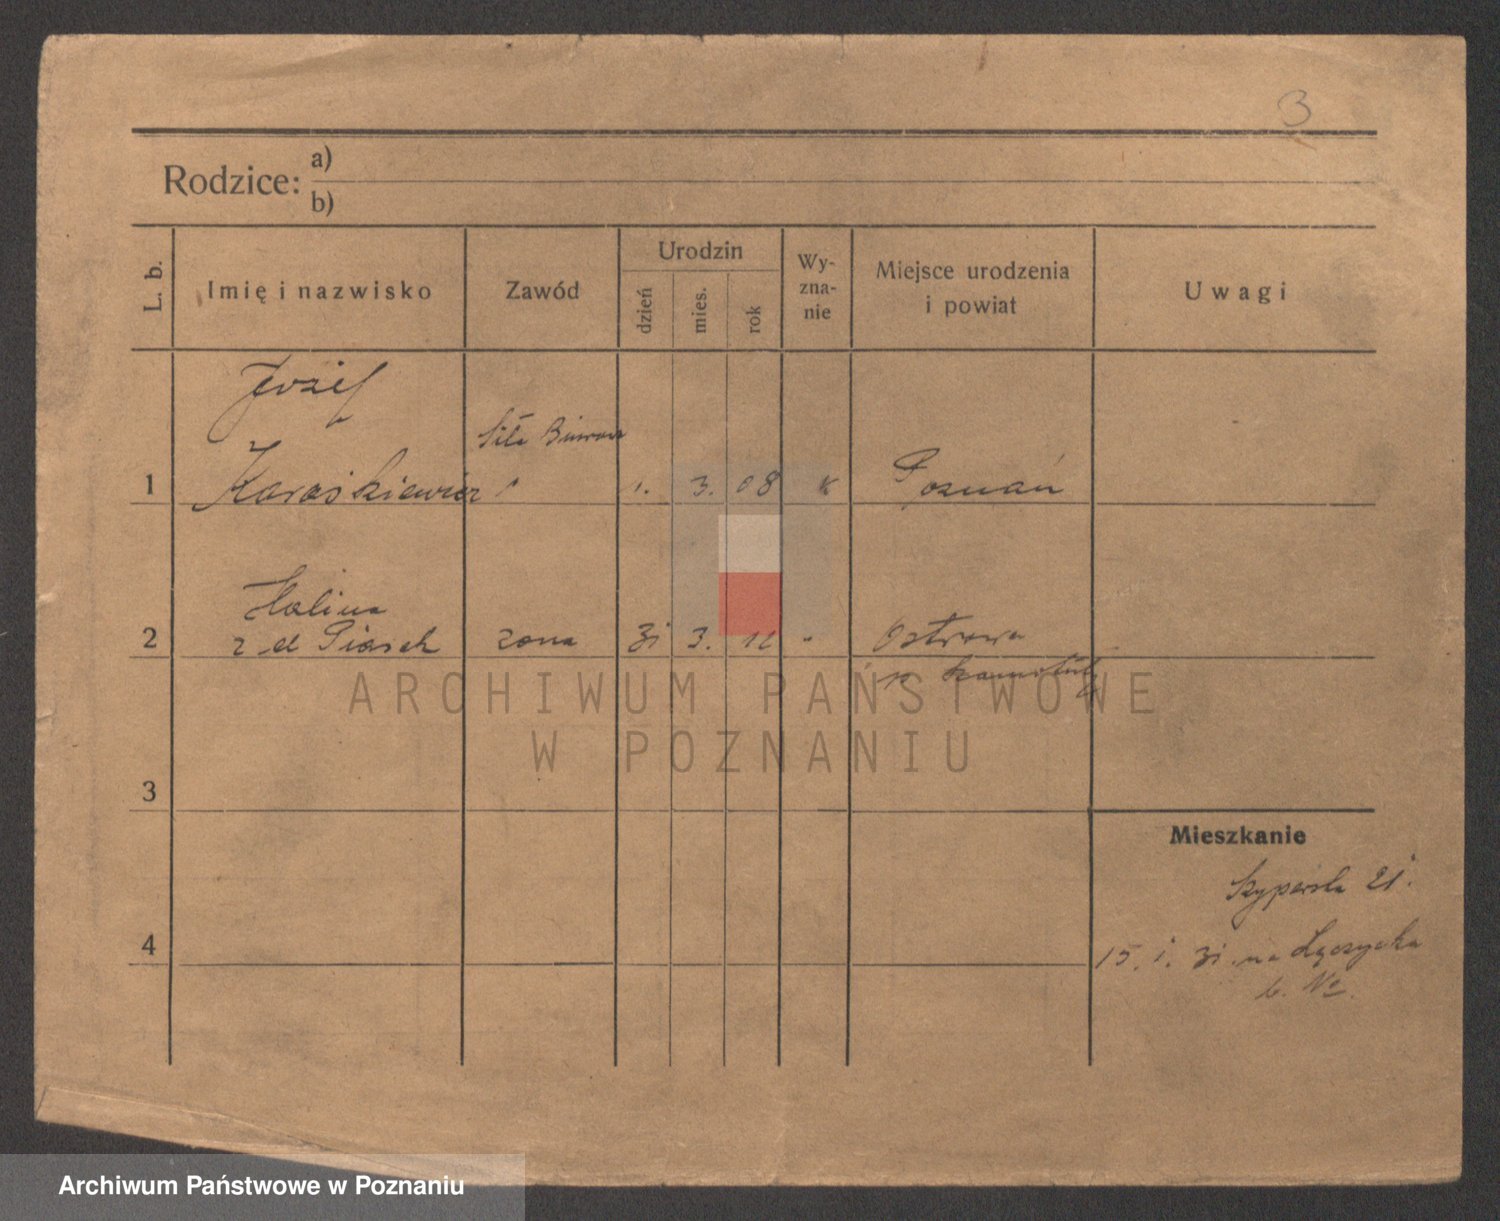 3
Rodzice: a)
b)
L. b.
Imię i nazwisko
Zawód
Urodzin
dzień
mies.
rok
Wy-
zna-
nie
Miejsce urodzenia
i powiat
Uwagi
Józef
Siła Biurowa
1 Karaśkiewicz 1. 3. 08 K Poznań
Halina
2 z d Piasek żona 31 3. 12 " Ostrowo
p
ARCHIWUM PAŃSTWOWE
W POZNANIU
3
Mieszkanie
Szyperska 21.
4
15. 1. 31. na Łączycka
b. No.
Archiwum Państwowe w Poznaniu